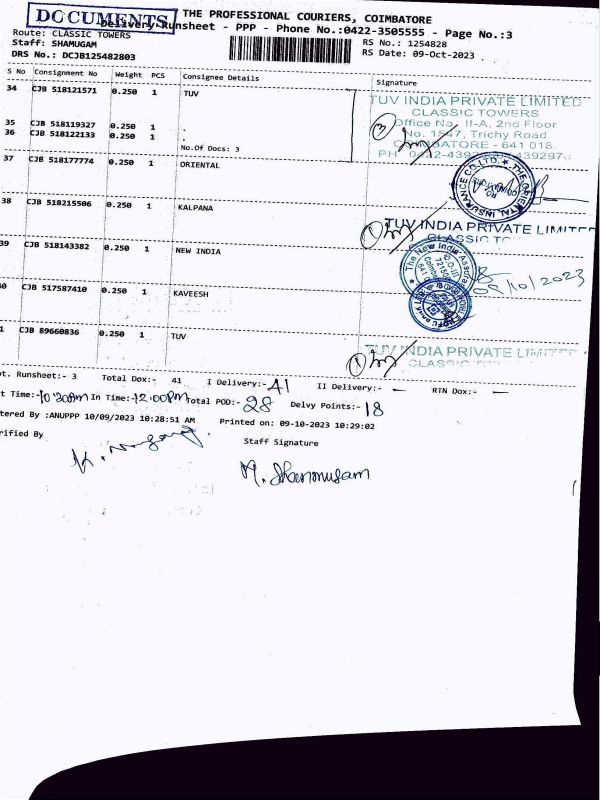 DOCUMENTS
THE PROFESSIONAL COURIERS, COIMBATORE
Delivery Runsheet - PPP - Phone No.:0422-3505555 - Page No.:3
Route: CLASSIC TOWERS
RS No.: 1254828
Staff: SHAMUGAM
RS Date: 09-Oct-2023
DRS No.: DCJB125482803
S No Consignment No Weight PCS Consignee Details Signature
34 CJB 518121571 0.250 1 TUV
TUV INDIA PRIVATE LIMITED
CLASSIC TOWERS
Office No. II-A, 2nd Floor
35 CJB 518119327 0.250 1 .
No. 1547, Trichy Road
36 CJB 518122133 0.250 1 .
3
641 018.
No.Of Docs: 3
37 CJB 518177774 0.250 1 ORIENTAL
THE ORIENTAL INSURANCE CO. LTD.
38 CJB 518215506 0.250 1 KALPANA
1
TUV INDIA PRIVATE LIMITE
CLASSIC TO
39 CJB 518143382 0.250 1 NEW INDIA
The New India Assura
09/10/2023
0 CJB 517587410 0.250 1 KAVEESH
1 CJB 89660836 0.250 1 TUV
1
INDIA PRIVATE LIMITE
CLASSIC
t. Runsheet:- 3 Total Dox:- 41 I Delivery:- 41 II Delivery:- — RTN Dox:- —
t Time:-10.30Am In Time:-12.00Pm Total POD:- 28 Delvy Points:- 18
tered By :ANUPPP 10/09/2023 10:28:51 AM Printed on: 09-10-2023 10:29:02
rified By
Staff Signature